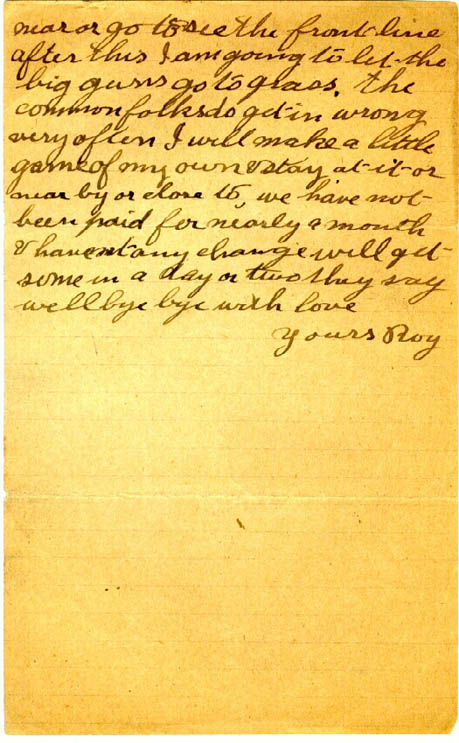 near or go to see the front line
after this I am going to let the
big guns go to grass. the
common folks do get in wrong
very often I will make a little
game of my own & stay at it or
near by or close to, we have not
been paid for nearly a month
& havent any change will get
some in a day or two they say
well bye bye with love
Yours Roy